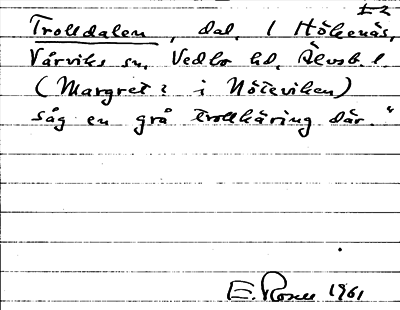 Trolldalen, dal. 1 Hökenäs,
Vårviks sn. Vedbo hd. Älvsb. l.
(Margret i Nöteviken)
såg en grå trollkäring där."
E. Rosell 1961